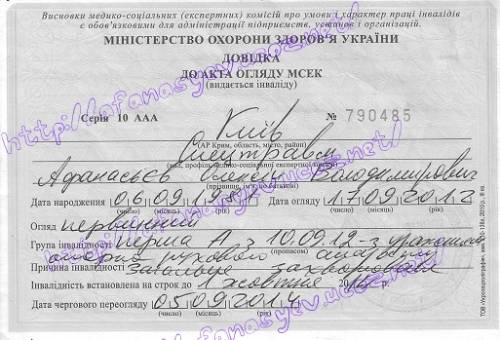 Висновки медико-соціальних (експертних) комісій про умови і характер праці інвалідів
є обов'язковими для адміністрації підприємств, установ і організацій.
МІНІСТЕРСТВО ОХОРОНИ ЗДОРОВ'Я УКРАЇНИ
ДОВІДКА
ДО АКТА ОГЛЯДУ МСЕК
(видається інваліду)
Серія 10 ААА Київ № 790485
(АР Крим, область, місто, район)
Спецтравм
Афанасьєв Олексій Володимирович
Дата народження 06 09 Дата огляду 17 09 2012
(число) (місяць) (рік) (число) (місяць) (рік)
Огляд первинний
Група інвалідності перша А з 10.09.12 - з
опорно рухового апарату
Причина інвалідності загальне захворювання
Інвалідність встановлена на строк до 1 жовтня
Дата чергового переогляду 05 09 2014
(число) (місяць) (рік)
http://afanasyev.ucoz.net/